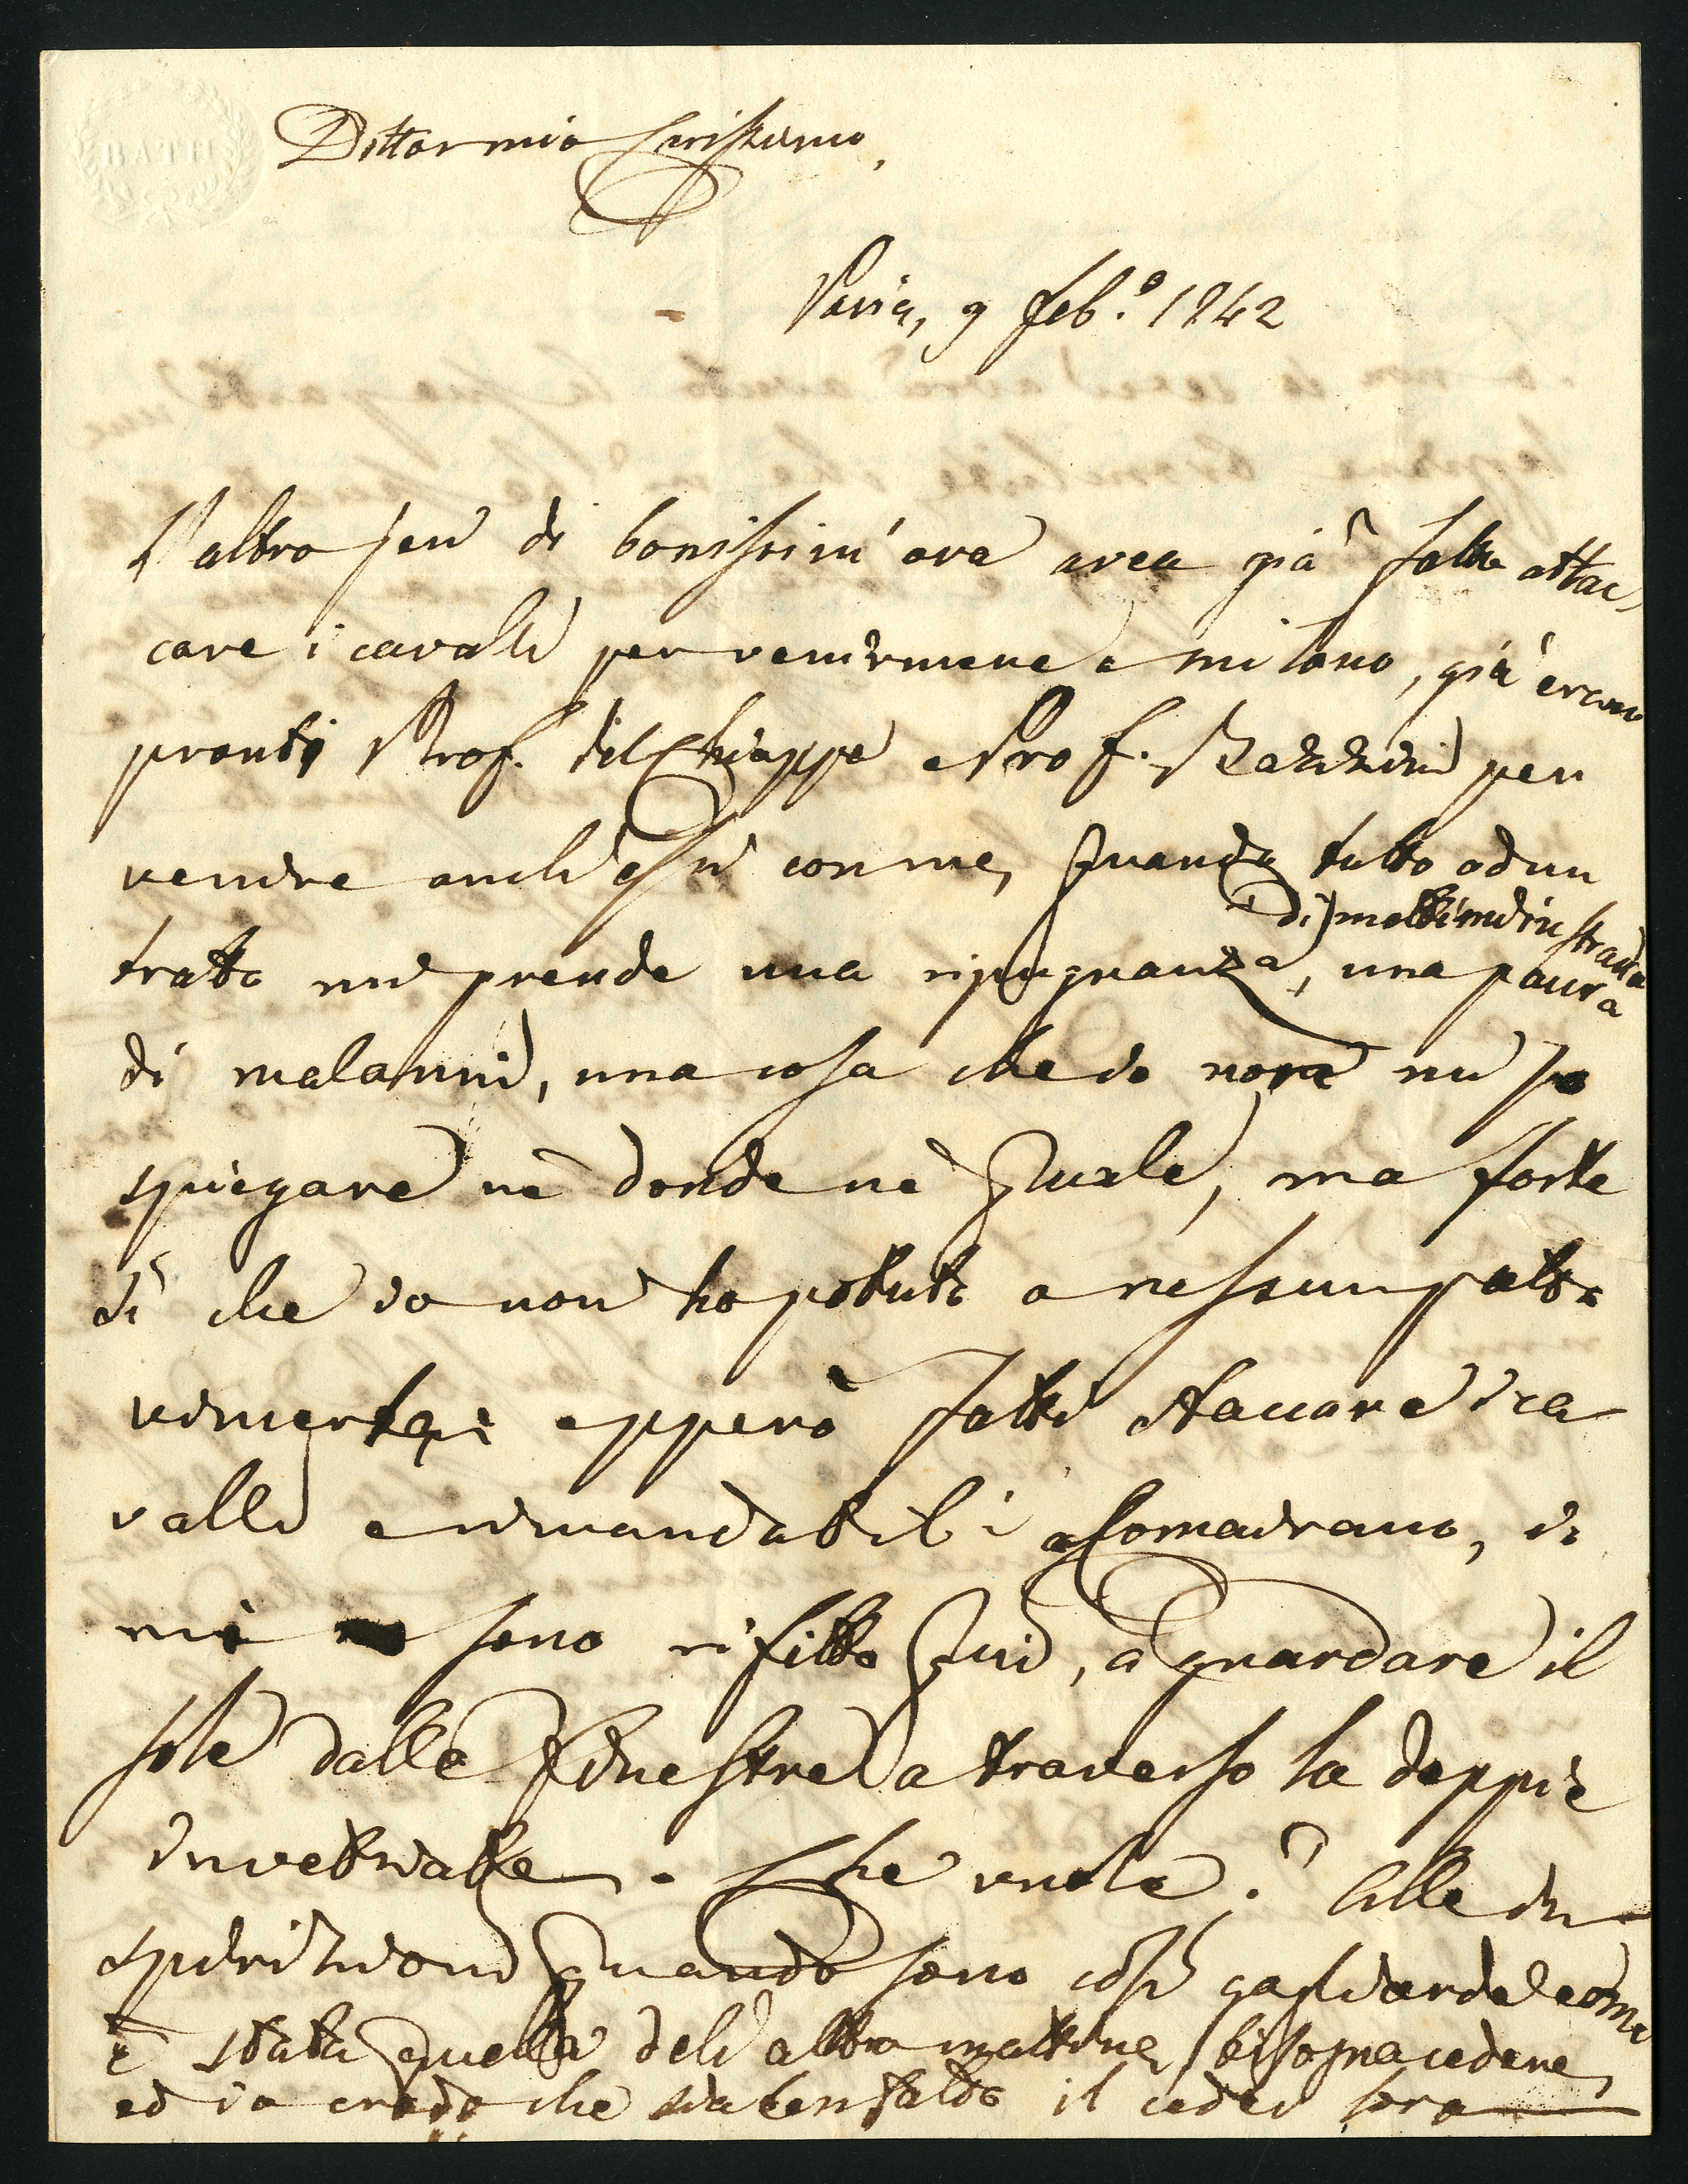 BATH
Dottor mio Carissimo,
Pavia, 9 feb.º 1842
L'altro jeri di bonissim'ora avea già fatto attac-
care i cavalli per venirmene a Milano, già erano
pronti Prof. Del Chiappa e Prof. Bazzini per
venire anch'essi con me, quando tutto ad un
di mettermi in strada
tratto mi prende una ripugnanza, una paura
di malanni, una cosa che io non mi so
spiegare nè donde nè quale, ma forte
sì che io non ho potuto a nessun patto
vincerla; e epperò fatti staccare i ca-
valli e rimandatili a Comairano, io
mi sono rifitto qui, a guardare il
sole dalle finestre a traverso la doppia
invetriata. Che vuole? Alle in-
spirazioni quando sono così gagliarde come
è stata quella dell'altra mattina, bisogna cedere,
ed io credo che sia ben fatto il ceder loro